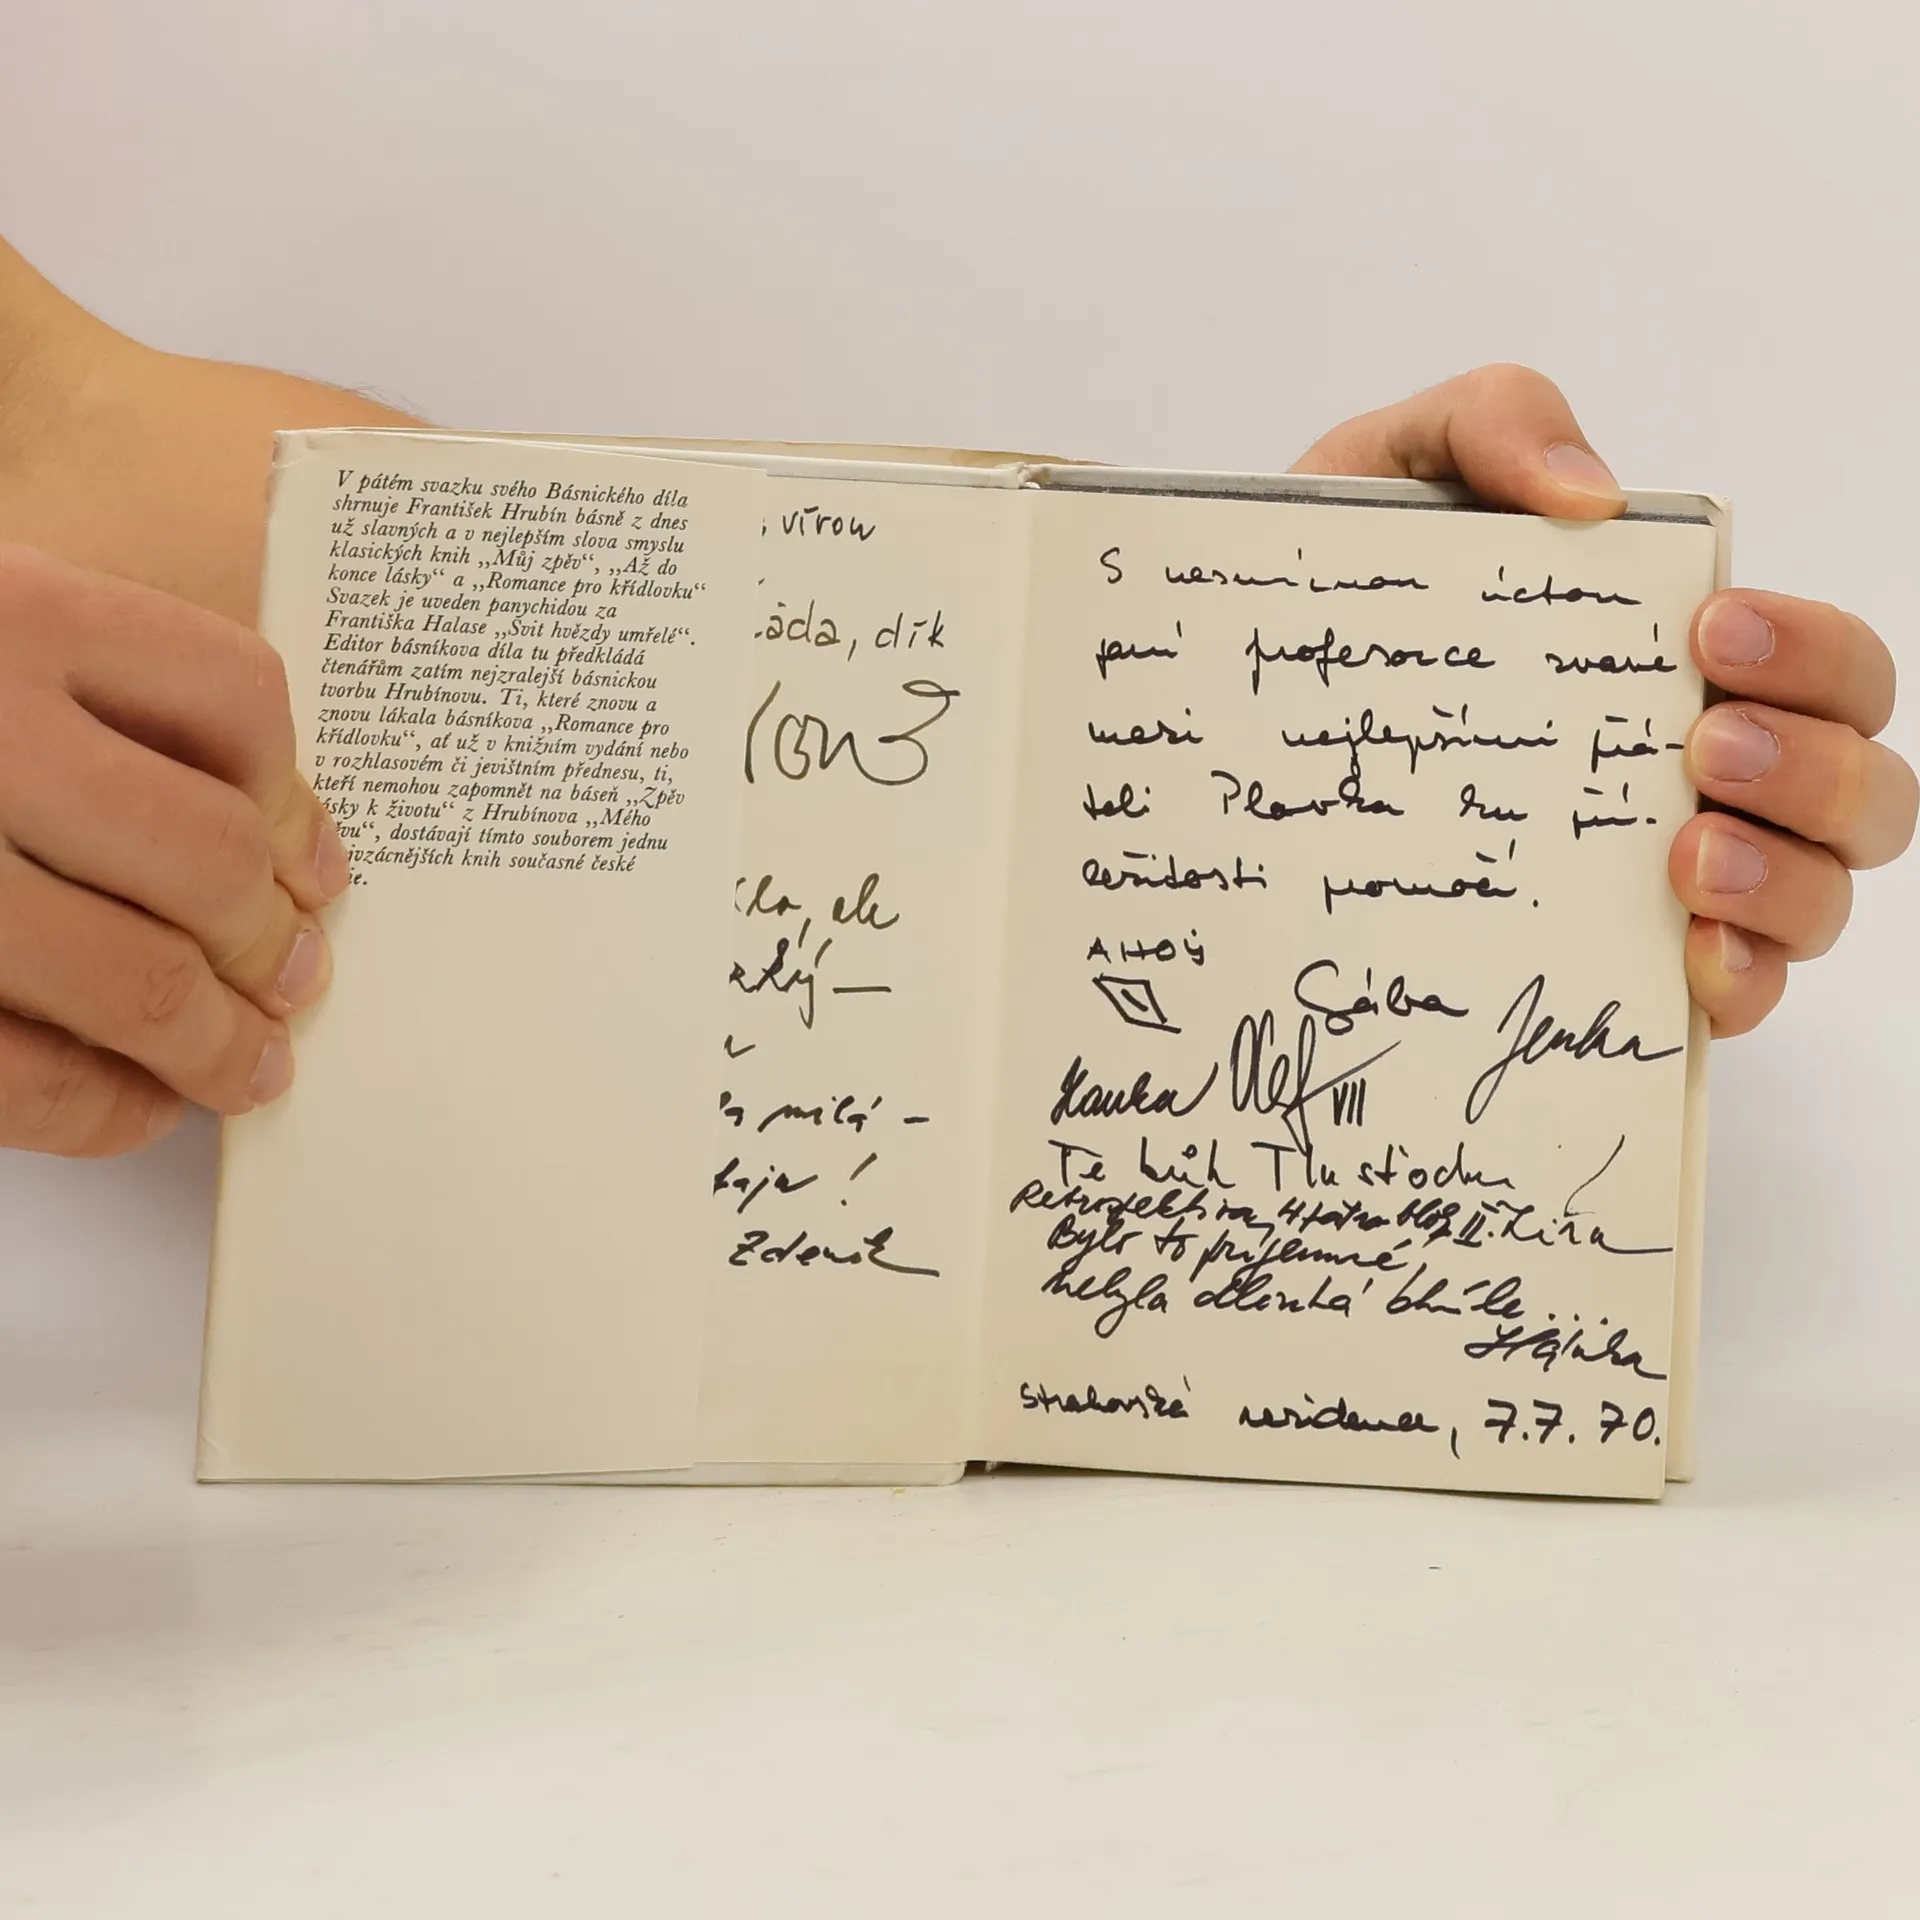 V pátém svazku svého Básnického díla
shrnuje František Hrubín básně z dnes
už slavných a v nejlepším slova smyslu
klasických knih „Můj zpěv“, „Až do
konce lásky“ a „Romance pro křídlovku“
Svazek je uveden panychidou za
Františka Halase „Svit hvězdy umřelé“.
Editor básníkova díla tu předkládá
čtenářům zatím nejzralejší básnickou
tvorbu Hrubínovu. Ti, které znovu a
znovu lákala básníkova „Romance pro
křídlovku“, ať už v knižním vydání nebo
v rozhlasovém či jevištním přednesu, ti,
kteří nemohou zapomnět na báseň „Zpěv
ásky k životu“ z Hrubínova „Mého
ěvu“, dostávají tímto souborem jednu
jvzácnějších knih současné české
ie.
, vírou
áda, dík
ale
milá –
!
Zdeněk
S nesmírnou úctou
paní profesorce zvané
mezi nejlepšími přá-
teli Plavka ku pří-
ležitosti pomočí.
AHOÝ
Sába
Jenka
Hanka
VII
Te bůh Tlusťochu
II.
Bylo to příjemné,
nebyla dlouhá chvíle ...
Strahovská rezidence, 7.7. 70.